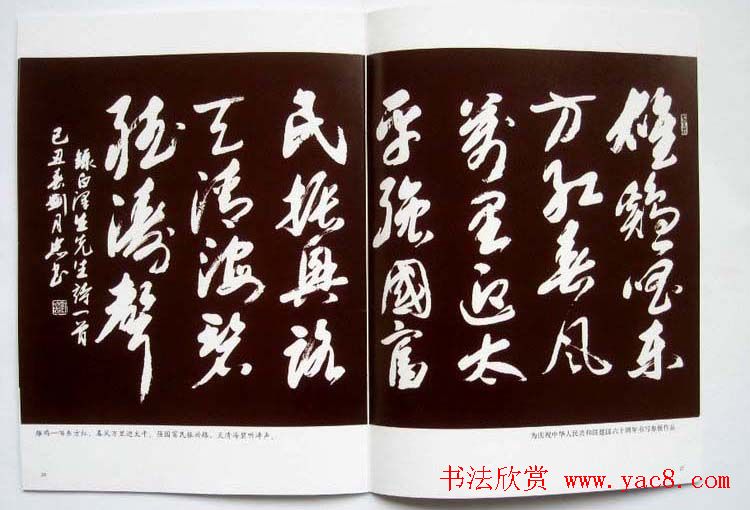 雄鷄一唱东
方红春风
萬里迎太
平强國富
民振興路
天清海碧
聽濤聲
录白泽生先生诗一首
己丑春劉月忠书
雄鸡一唱东方红，春风万里迎太平。强国富民振兴路，天清海碧听涛声。
为庆祝中华人民共和国建国六十周年书写参展作品
书法欣赏 www.yac8.com